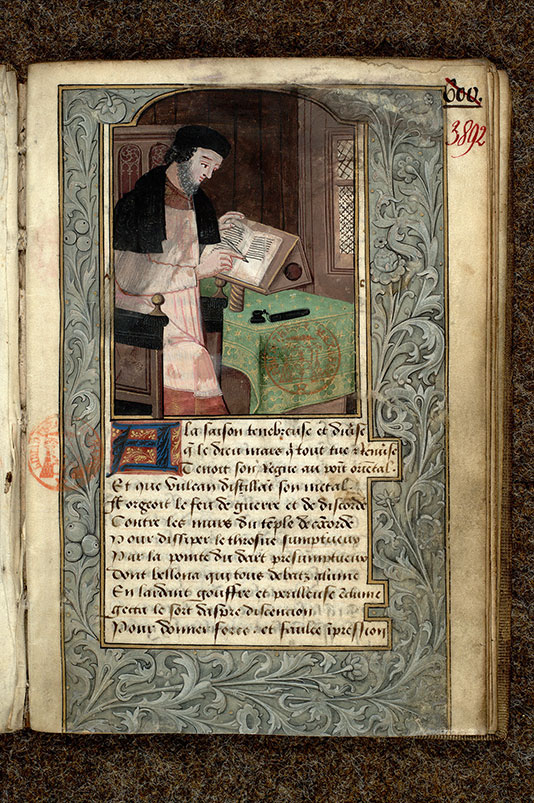 600.
3892
A la saison tenebreuse et diuise
q̄ le dieu mars q̄ tout tue
Tenoit son Regne au
Et que vulcan distillait son metal
fforgeoit le feu de guerre et de discorde
Contre les murs du tēple de cōcorde
Pour dissiper le throsne sumptueux
Par la pointe du dart presumptueux
Dont bellona qui tous debatz alume
En lardant gouffre et perilleuse
gecta le sort daspre discencion
Pour donner force et faulce īpression